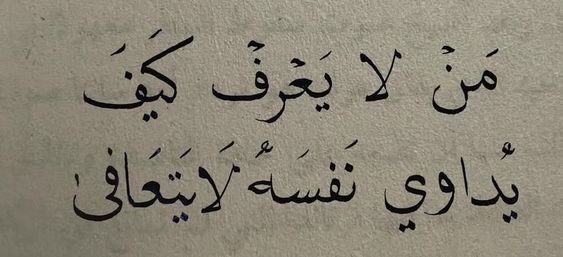 مَنْ لا يَعْرفْ كَيَفَ
يُداوي نَفسَهُ لَايَتَعَافىٰ